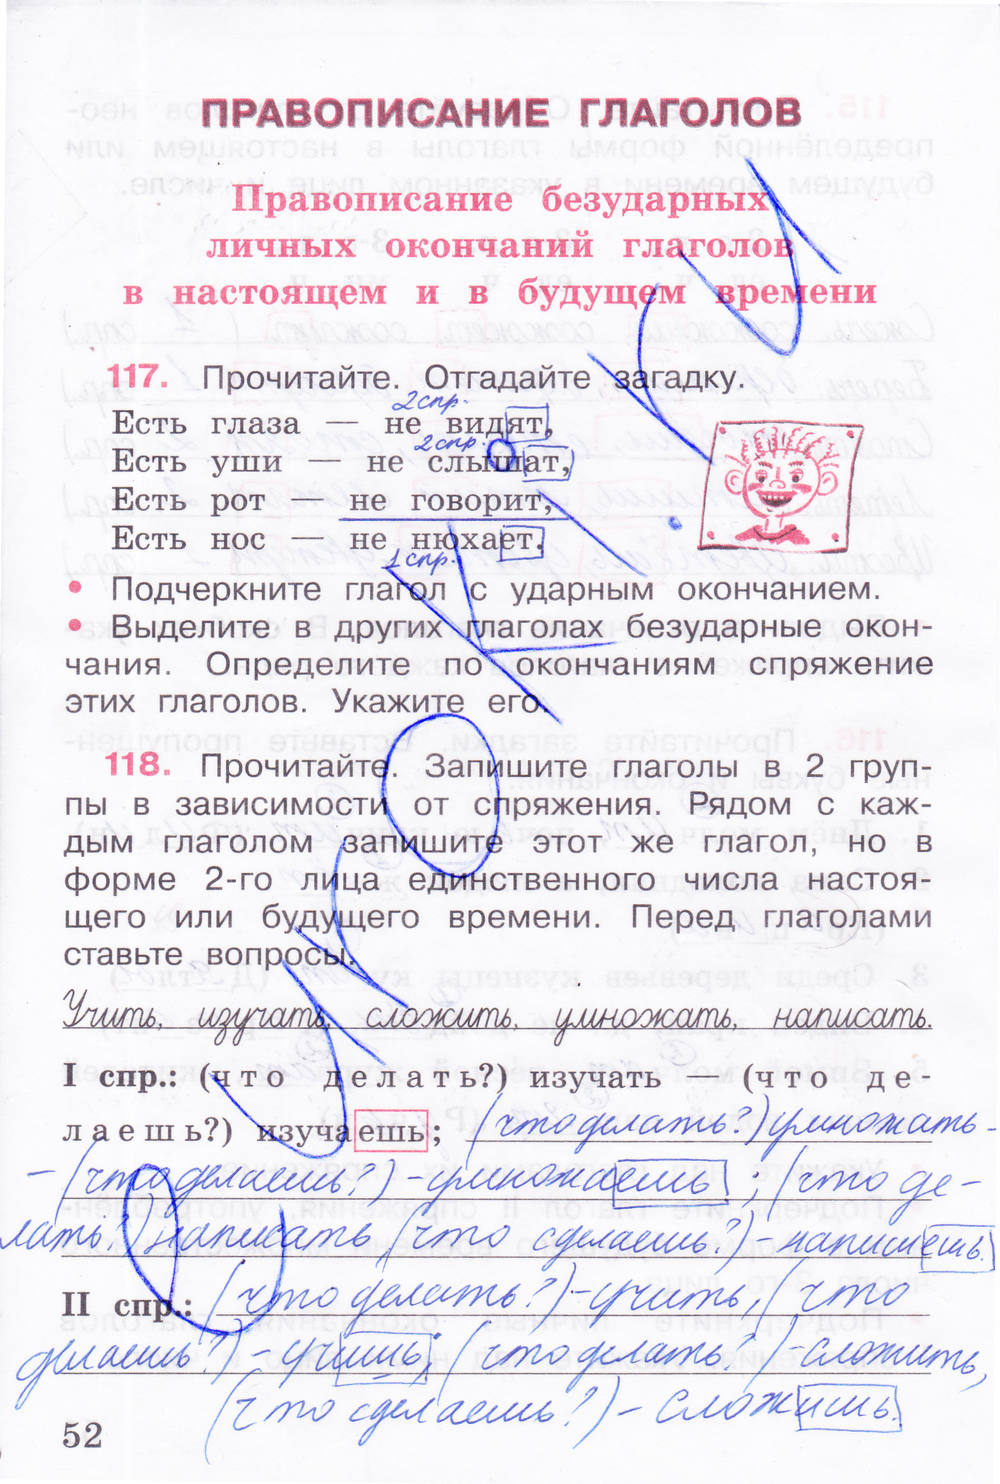 ПРАВОПИСАНИЕ ГЛАГОЛОВ
Правописание безударных
личных окончаний глаголов
в настоящем и в будущем времени
117. Прочитайте. Отгадайте загадку.
2 спр.
Есть глаза — не видят,
2 спр.
Есть уши — не слышат,
Есть рот не говорит,
Есть нос — не нюхает.
1 спр.
• Подчеркните глагол с ударным окончанием.
• Выделите в других глаголах безударные окон-
чания. Определите по окончаниям спряжение
этих глаголов. Укажите его.
118. Прочитайте. Запишите глаголы в 2 груп-
пы в зависимости от спряжения. Рядом с каж-
дым глаголом запишите этот же глагол, но в
форме 2-го лица единственного числа настоя-
щего или будущего времени. Перед глаголами
ставьте вопросы.
Учить, изучать, сложить, умножать, написать.
I спр.: (что делать?) изучать — (что де-
лаешь?) изучаешь; (что делать?) умножать -
- (что делаешь?) - умножаешь; (что де-
лать) написать (что сделаешь?) - напишешь.
II спр.: (что делать?) - учить, (что
делаешь?) - учишь, (что делать?) - сложить,
(что сделаешь?) - сложишь.
52